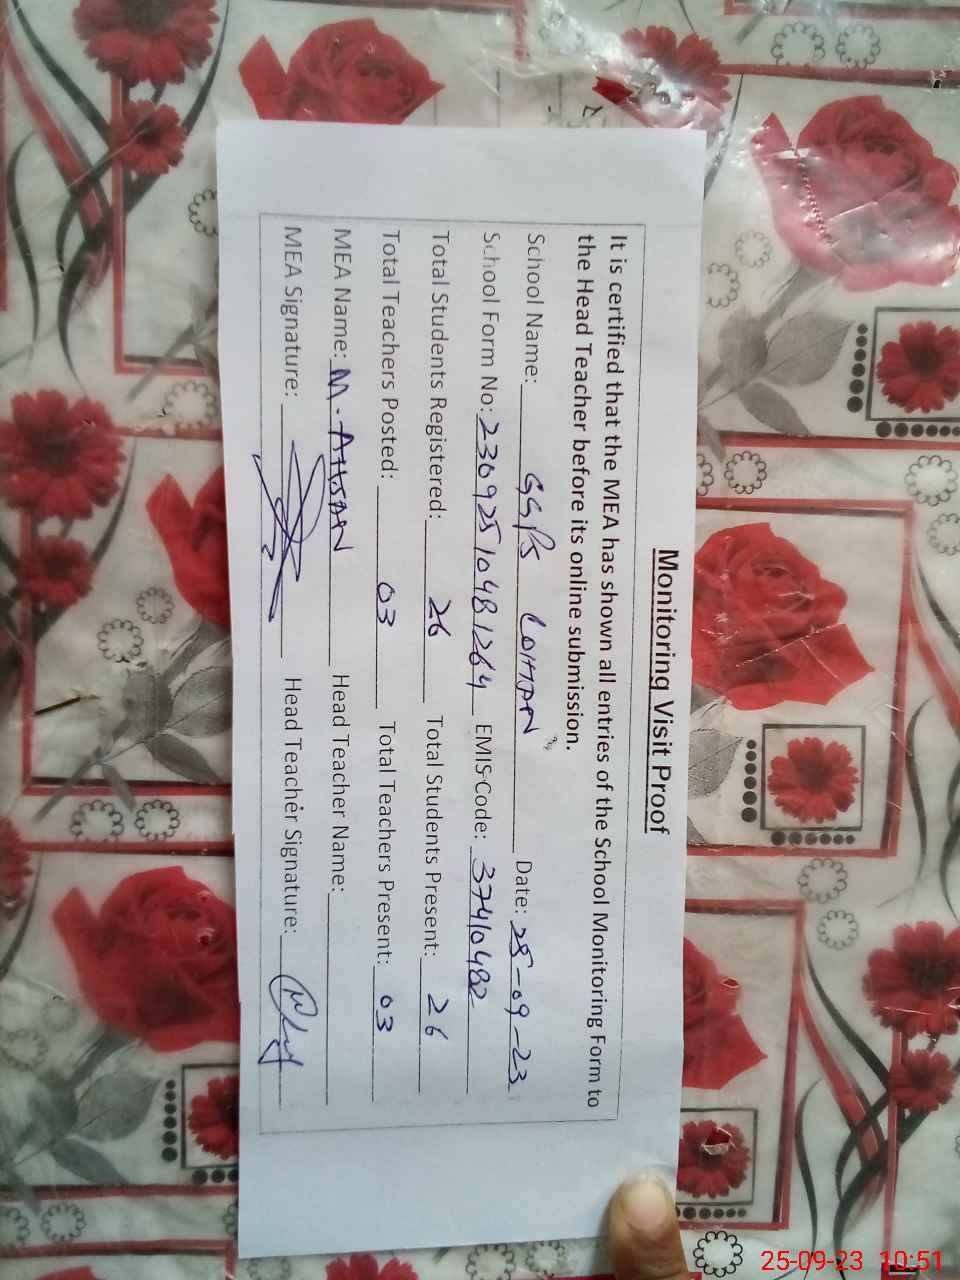 Monitoring Visit Proof
It is certified that the MEA has shown all entries of the School Monitoring Form to
the Head Teacher before its online submission.
School Name: GGPS LOHAN Date: 25-09-23
School Form No: 23092510481264 EMIS Code: 37410482
Total Students Registered: 26 Total Students Present: 26
Total Teachers Posted: 03 Total Teachers Present: 03
MEA Name: M. AHSAN Head Teacher Name:
MEA Signature: Head Teacher Signature:
25-09-23 10:51